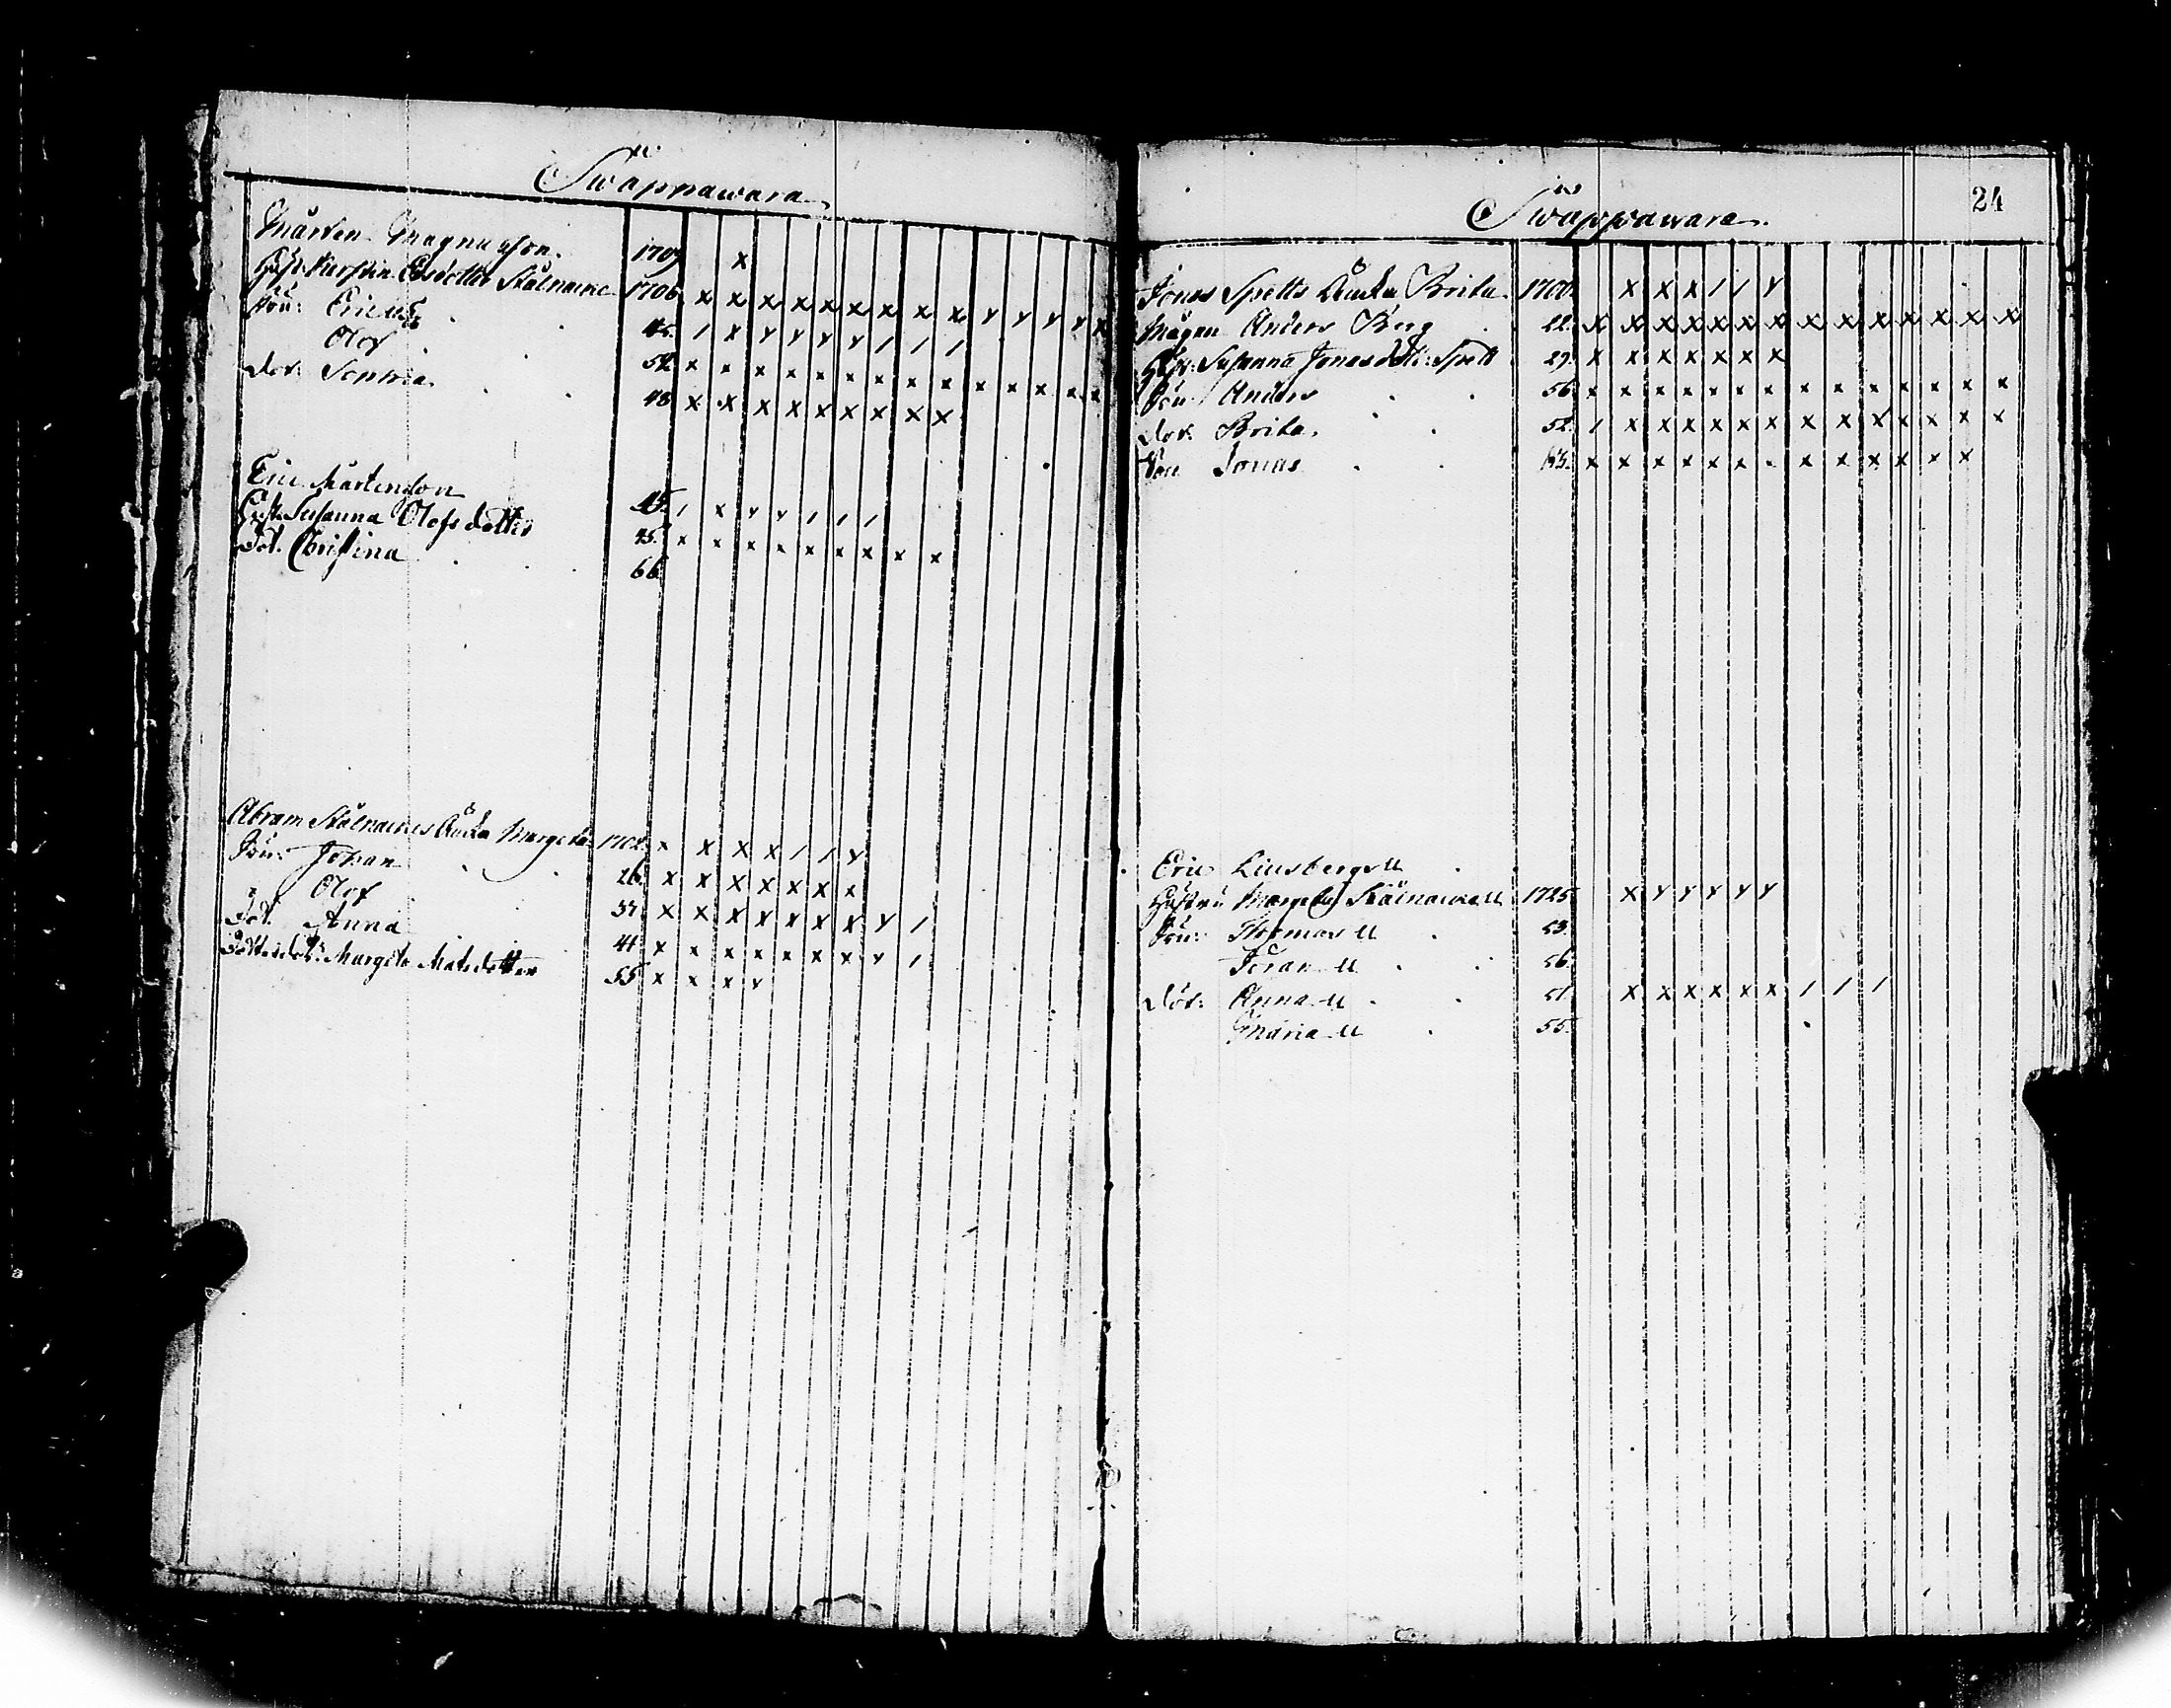 Swappawara
Mårten Magnusson. 1709 x
Hust: Kerstin Ersdotter Stålnacke 1706 x x x x x x x x x y y y y x
Son: Eric 45. / x y y y y / / /
Olof 52 x x x x x x x x x x x x x x
Dot: Sophia 48 x x x x x x x x x
Eric Mårtenson 45. / x y y / / /
Hust: Susanna Olofsdotter 45. x x x x x x x x x
Dot. Christina 66
Abram Stålnackes Äncka Margeta 1702. x x x x / / y
Son: Johan 26. x x x x x x x
Olof 37 x x x x x x x y /
Dot. Anna 41 x x x x x x x y /
Margeta Matsdotter 55 x x x y
Swappawara
24
Jonas Spetts Äncka Brita 1700. x x x / / y
Mågen Anders Berg 22. x x x x x x x x x x x x x x
Hust: Susanna Jonsdott: Spett 29. x x x x x x x
Son Anders 56. x x x x x x x x x x x x x x
Dot: Brita. 52. / x x x x x x x x x x x x x
Son Jonas x x x x x x . x x x x x x
Eric Liusbergs U
Hustru Margeta Stålnacke U 1725. x y y y y y
Son: Thomas U 53.
Johan U 56.
Dot: Anna U 51. x x x x x x / / /
Maria U 55.